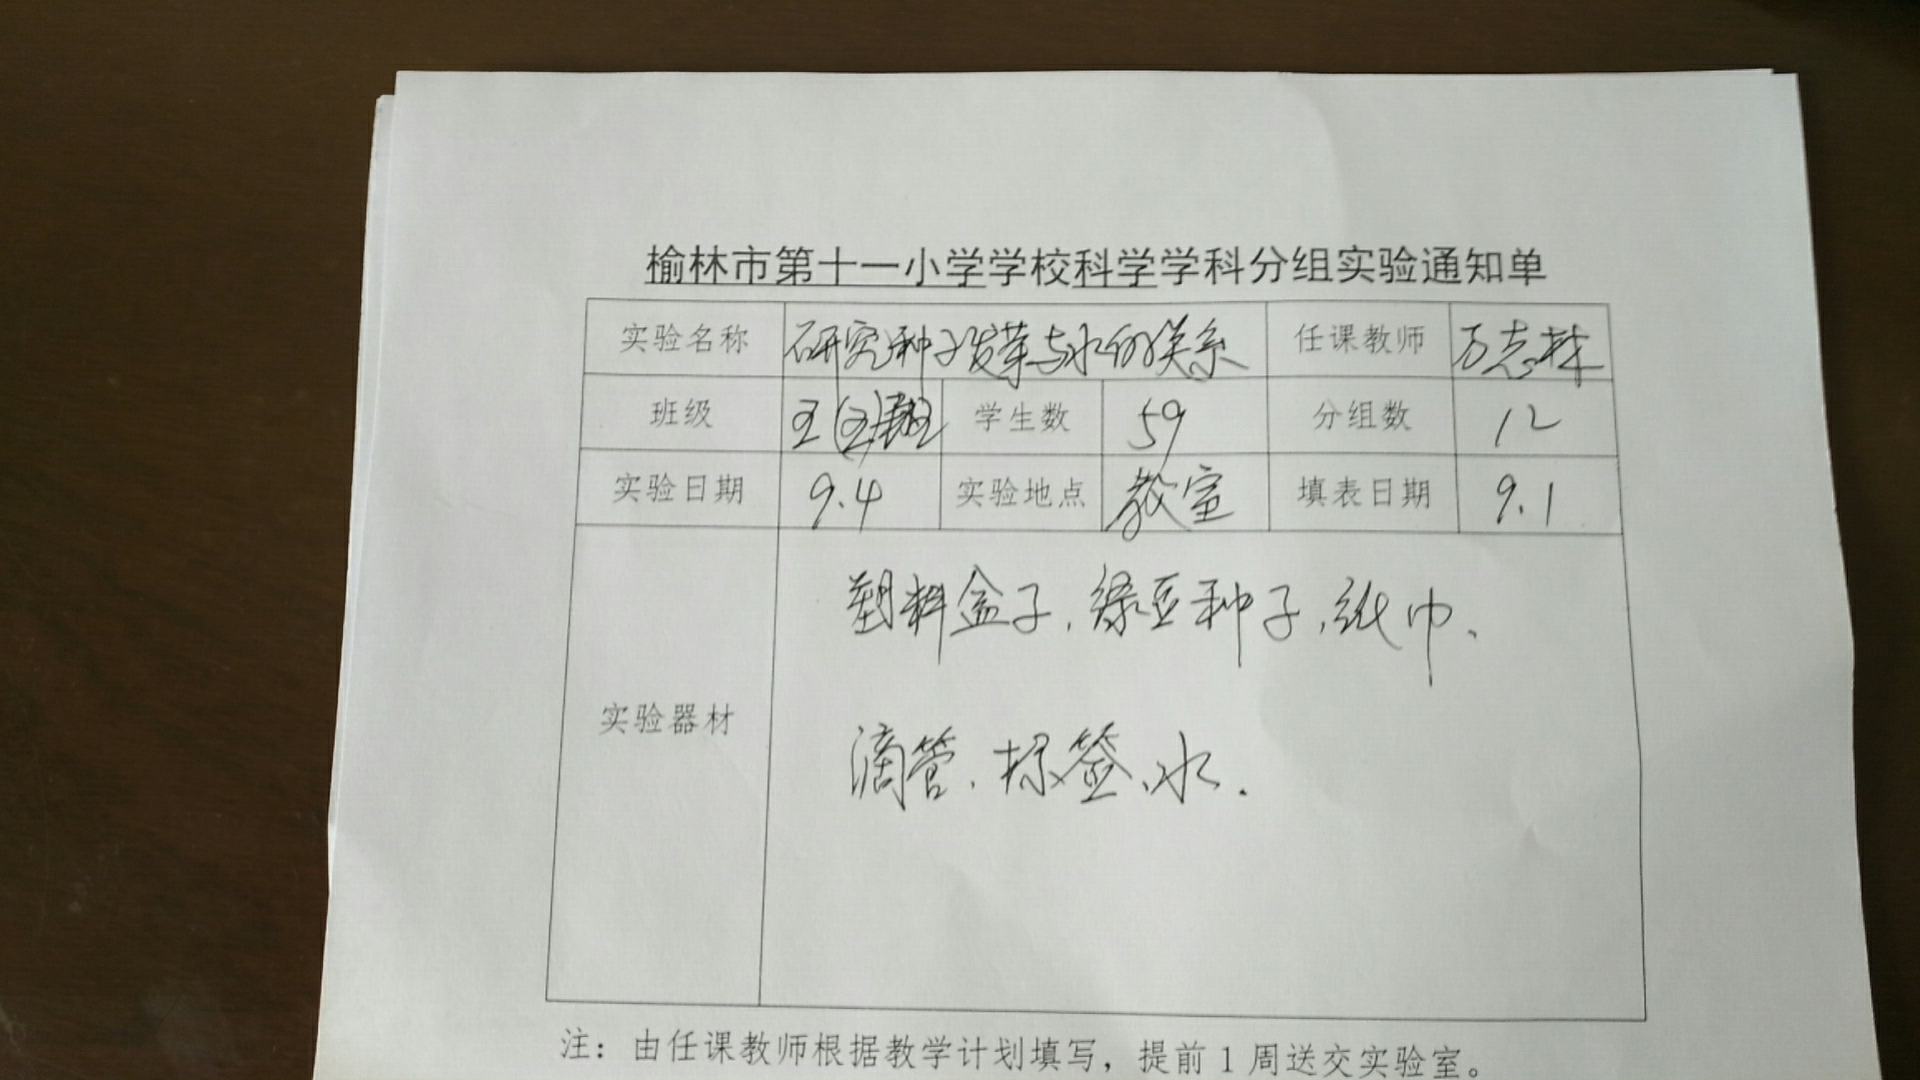 榆林市第十一小学学校科学学科分组实验通知单
实验名称 研究种子发芽与水的关系 任课教师 万志林
班级 五(五)班 学生数 59 分组数 12
实验日期 9.4 实验地点 教室 填表日期 9.1
塑料盒子、绿豆种子、纸巾、
实验器材
滴管、标签、水.
注：由任课教师根据教学计划填写，提前1周送交实验室。